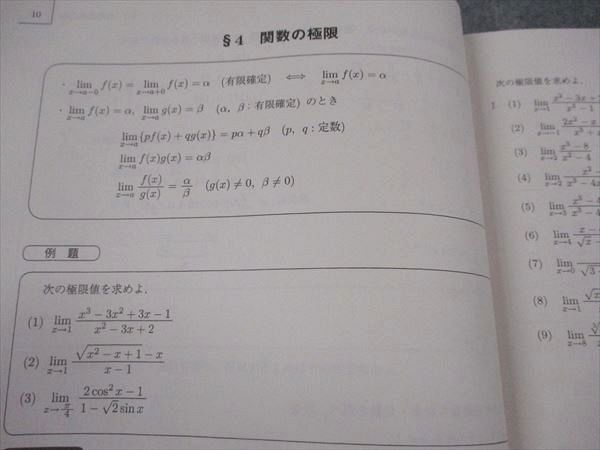 10
§4 関数の極限
・ lim_{x→a−0} f(x) = lim_{x→a+0} f(x) = α (有限確定) ⟺ lim_{x→a} f(x) = α
・ lim_{x→a} f(x) = α, lim_{x→a} g(x) = β (α, β : 有限確定) のとき
lim_{x→a} {pf(x) + qg(x)} = pα + qβ (p, q : 定数)
lim_{x→a} f(x)g(x) = αβ
lim_{x→a} f(x)/g(x) = α/β (g(x) ≠ 0, β ≠ 0)
例 題
次の極限値を求めよ.
(1) lim_{x→1} (x³ − 3x² + 3x − 1)/(x² − 3x + 2)
(2) lim_{x→1} (√(x² − x + 1) − x)/(x − 1)
(3) lim_{x→π/4} (2cos² x − 1)/(1 − √2 sin x)
次の極限値を求めよ.
1 (1) lim_{x→1} x² − 3x + / x² − 1
(2) lim_{x→−1} 2x² − x / x³ +
(3) lim_{x→2} x³ − 8 / x² − 4
(4) lim_{x→2} x² − / x³ − 4x
(5) lim_{x→3} x³ − 4 / x² −
(6) lim_{x→4} x − / √x −
(7) lim_{x→0} / √3
(8) lim_{x→1} √x
(9) lim_{x→8}